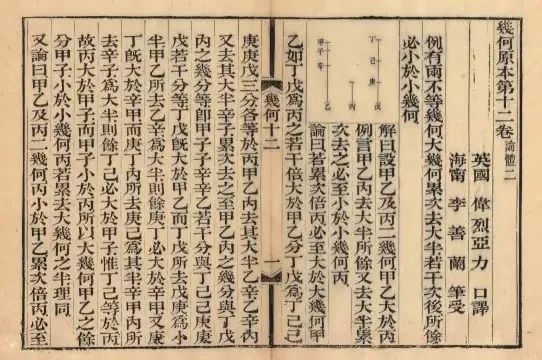 幾何原本第十二卷 論體二
英國 偉烈亞力 口譯
海甯 李善蘭 筆受
例有兩不等幾何大幾何累次去大半若干次後所餘
必小於小幾何
丁己庚戊
甲子辛乙
丙
解曰設甲乙及丙二幾何甲乙大於丙
例言甲乙內去大半所餘又去大半累
次去之必至小於小幾何丙
論曰若累次倍丙必至大於大幾何甲
乙如丁戊爲丙之若干倍大於甲乙分丁戊爲丁己己
幾何十二
一
庚庚戊三分各等於丙甲乙內去其大半乙辛乙辛內
又去其大半辛子累次去之至甲乙內之幾分與丁戊
內之幾分等即甲子子辛辛乙若干分與丁己己庚庚
戊若干分等丁戊既大於甲乙而丁戊所去戊庚爲小
半甲乙所去乙辛爲大半則餘庚丁必大於辛甲又庚
丁既大於辛甲而庚丁內所去庚己爲其半辛甲內所
去辛子爲大半則餘丁己必大於甲子惟丁己等於丙
故丙大於甲子而甲子小於丙所以大幾何甲乙之餘
分甲子小於小幾何丙若累次去大幾何之半理同
又論曰甲乙及丙二幾何丙小於甲乙累次倍丙必至